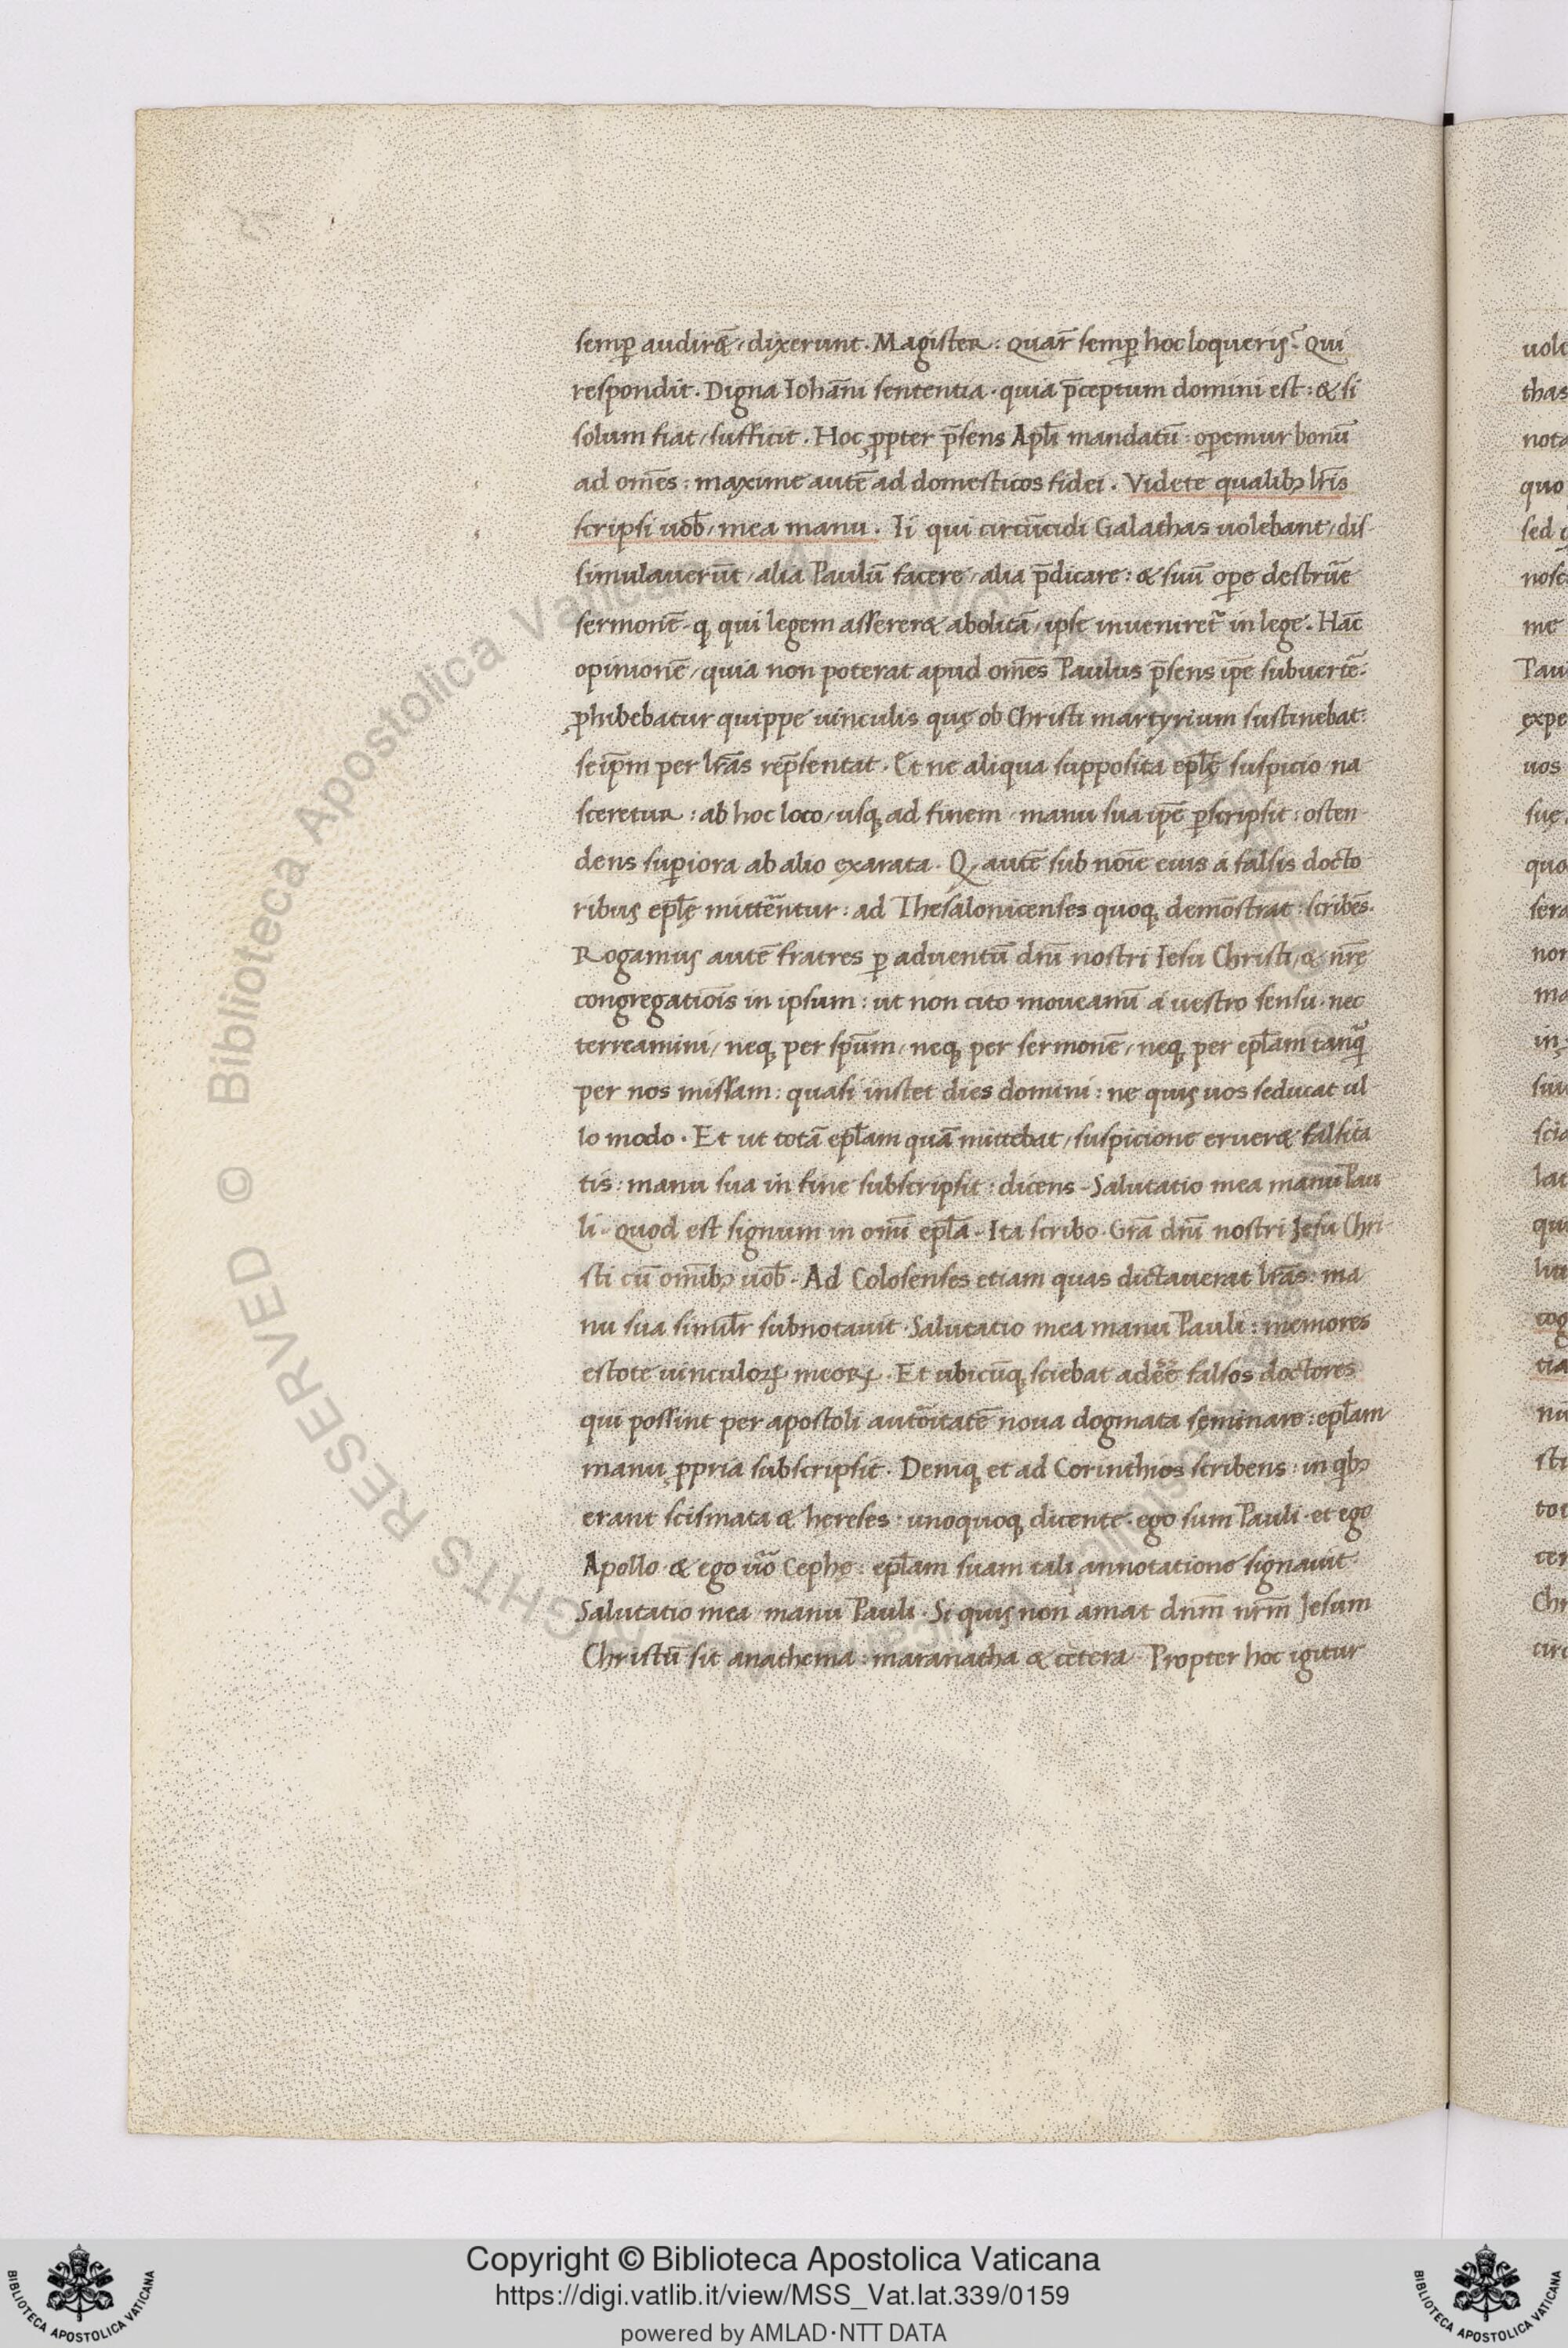 semꝑ audirẽt, dixerunt. Magister: quar̃ semꝑ hoc loqueris? Qui
respondit. Digna Iohãni sententia. quia p̃ceptum domini est: & si
solum fiat, sufficit. Hoc ꝓpter p̃sens Apl̃i mandatũ: oꝑemur bonũ
ad om̃es: maxime autẽ ad domesticos fidei. Videte qualibꝫ lr̃is
scripsi uob̃, mea manu. Ii qui circũcidi Galathas uolebant, dis
simulauerũt, alia Paulũ facere, alia p̃dicare: & suũ oꝑe destrũe
sermonẽ. qꝫ qui legem assereret abolitã, ipse inueniret᷑ in lege. Hãc
opinionẽ, quia non poterat apud om̃es Paulus p̃sens ip̃e subuertẽ.
ꝓhibebatur quippe uinculis quę ob Christi martyrium sustinebat:
seip̃m per lr̃as rep̃sentat. Et ne aliqua supposita epl̃ę suspicio na
sceretur: ab hoc loco, usqꝫ ad finem, manu sua ip̃e ꝑscripsit: osten
dens suꝑiora ab alio exarata. Qꝫ autẽ sub noĩe eius á falsis docto
ribus epl̃ę mittẽrentur: ad Thesalonicenses quoqꝫ demõstrat: scribẽs.
Rogamus autẽ fratres ꝑ aduentũ dñi nostri Iesu Christi, & nr̃ę
congregatiõis in ipsum: ut non cito moueamĩ á uestro sensu. nec
terreamini, neqꝫ per spũm, neqꝫ per sermonẽ, neqꝫ per epl̃am tanq̃
per nos missam: quasi instet dies domini: ne quis uos seducat ul
lo modo. Et ut totã epl̃am quã mittebat, suspicione erueret falsita
tis: manu sua in fine subscripsit: dicens. Salutatio mea manu Pau
li. quod est signum in om̃i epl̃a. Ita scribo. Gr̃a dñi nostri Jesu Chri
sti cũ om̃ibꝫ uob̃. Ad Colosenses etiam quas dictauerat lr̃as: ma
nu sua simil̃r subnotauit. Salutatio mea manu Pauli: memores
estote uinculoꝝ meoꝝ. Et ubicũqꝫ sciebat adẽẽ falsos doctores
qui possint per apostoli autõitatẽ noua dogmata seminare: epl̃am
manu ꝓpria subscripsit. Deniqꝫ et ad Corinthios scribens: in qͥbꝫ
erant scismata & hereses: unoquoqꝫ dicente. ego sum Pauli. et ego
Apollo. & ego ũo Cephę: epl̃am suam tali annotatione signauit.
Salutatio mea manu Pauli. Si quis non amat dñm nr̃m Jesum
Christũ sit anathema: maranatha & cetera. Propter hoc igitur
Copyright © Biblioteca Apostolica Vaticana
https://digi.vatlib.it/view/MSS_Vat.lat.339/0159
powered by AMLAD·NTT DATA